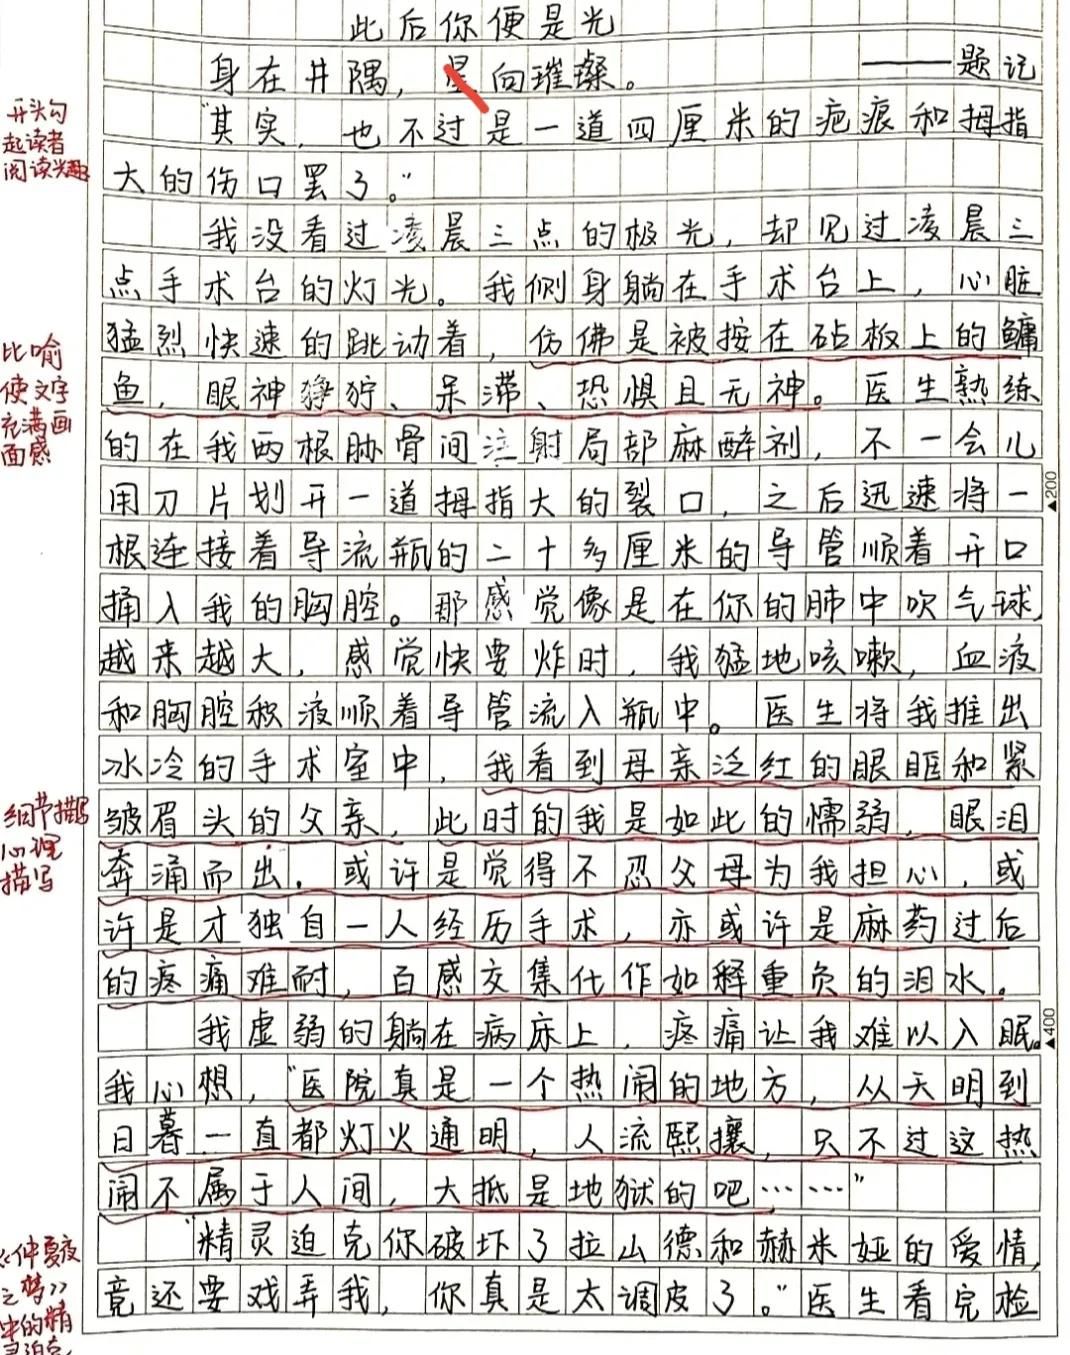 此后你便是光
身在井隅，星向璀璨。 ——题记
"其实，也不过是一道四厘米的疤痕和拇指
大的伤口罢了。"
我没看过凌晨三点的极光，却见过凌晨三
点手术台的灯光。我侧身躺在手术台上，心脏
猛烈快速的跳动着，仿佛是被按在砧板上的鳙
鱼，眼神狰狞、呆滞、恐惧且无神。医生熟练
的在我两根肋骨间注射局部麻醉剂，不一会儿
用刀片划开一道拇指大的裂口，之后迅速将一
根连接着导流瓶的二十多厘米的导管顺着开口
捅入我的胸腔。那感觉像是在你的肺中吹气球，
越来越大，感觉快要炸时，我猛地咳嗽，血液
和胸腔积液顺着导管流入瓶中。医生将我推出
冰冷的手术室中，我看到母亲泛红的眼眶和紧
皱眉头的父亲，此时的我是如此的懦弱，眼泪
奔涌而出。或许是觉得不忍父母为我担心，或
许是才独自一人经历手术，亦或许是麻药过后
的疼痛难耐，百感交集化作如释重负的泪水。
我虚弱的躺在病床上，疼痛让我难以入眠。
我心想，"医院真是一个热闹的地方，从天明到
日暮一直都灯火通明，人流熙攘，只不过这热
闹不属于人间，大抵是地狱的吧……"
"精灵迫克你破坏了拉山德和赫米娅的爱情，
竟还要戏弄我，你真是太调皮了。"医生看完检
开头勾
起读者
阅读兴趣
比喻
使文字
充满画
面感
细节描写
心理
描写
《仲夏夜
之梦》
中的精
灵迫克
200
400